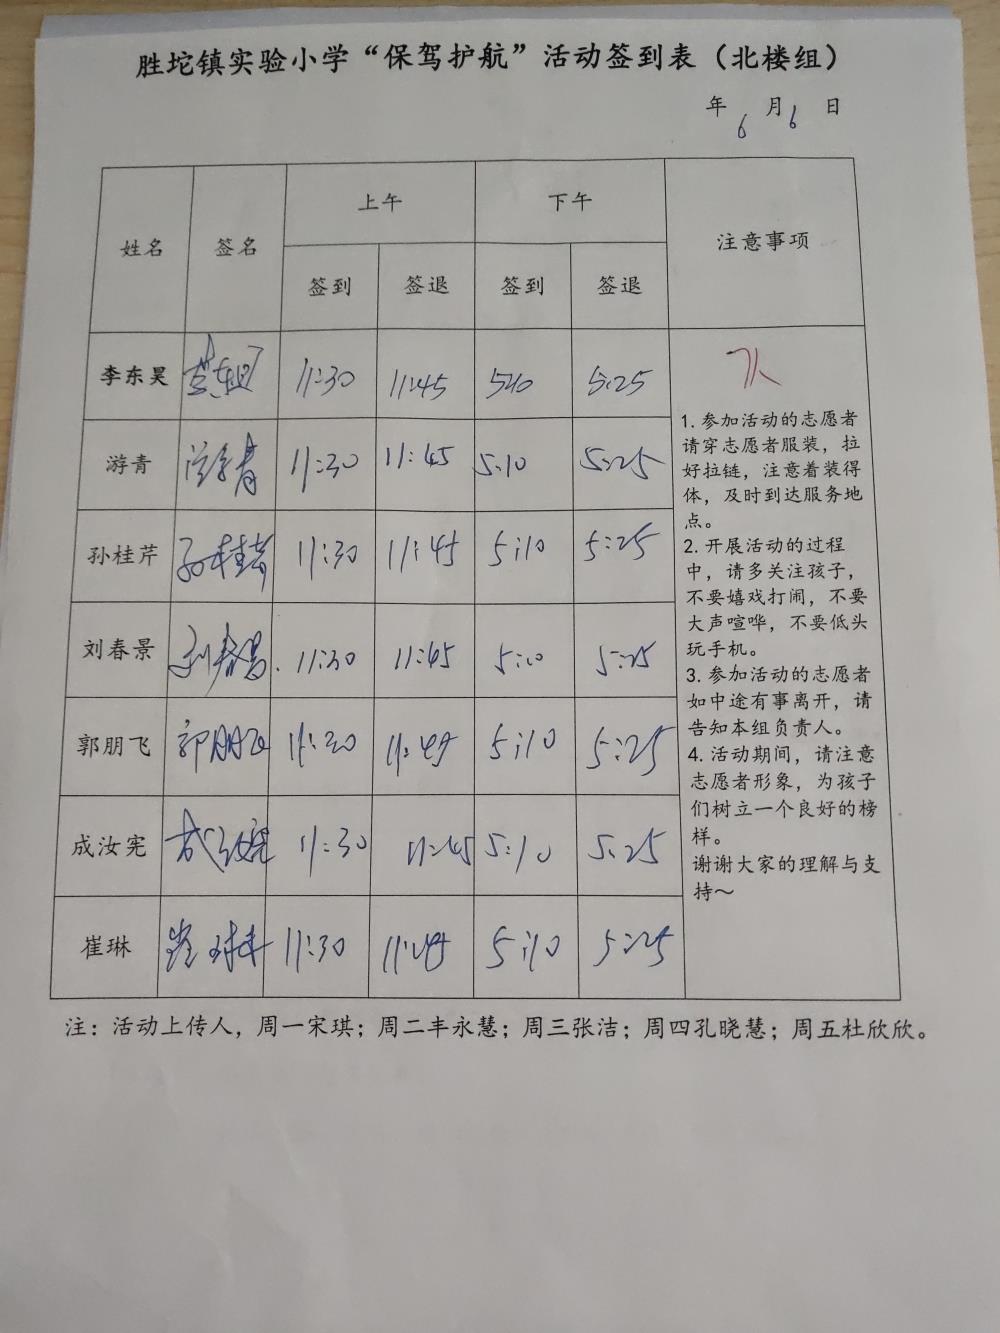 胜坨镇实验小学“保驾护航”活动签到表（北楼组）
年 6 月 6 日
姓名 签名 上午 下午 注意事项
签到 签退 签到 签退
李东昊 11:30 11:45 5:10 5:25
游青 游青 11:30 11:45 5:10 5:25
孙桂芹 孙桂芹 11:30 11:45 5:10 5:25
刘春景 刘春景 11:30 11:45 5:10 5:25
郭朋飞 郭朋飞 11:30 11:45 5:10 5:25
成汝宪 成汝宪 11:30 11:45 5:10 5:25
崔琳 崔琳 11:30 11:45 5:10 5:25
1. 参加活动的志愿者
请穿志愿者服装，拉
好拉链，注意着装得
体，及时到达服务地
点。
2. 开展活动的过程
中，请多关注孩子，
不要嬉戏打闹，不要
大声喧哗，不要低头
玩手机。
3. 参加活动的志愿者
如中途有事离开，请
告知本组负责人。
4. 活动期间，请注意
志愿者形象，为孩子
们树立一个良好的榜
样。
谢谢大家的理解与支
持～
注：活动上传人，周一宋琪；周二丰永慧；周三张洁；周四孔晓慧；周五杜欣欣。